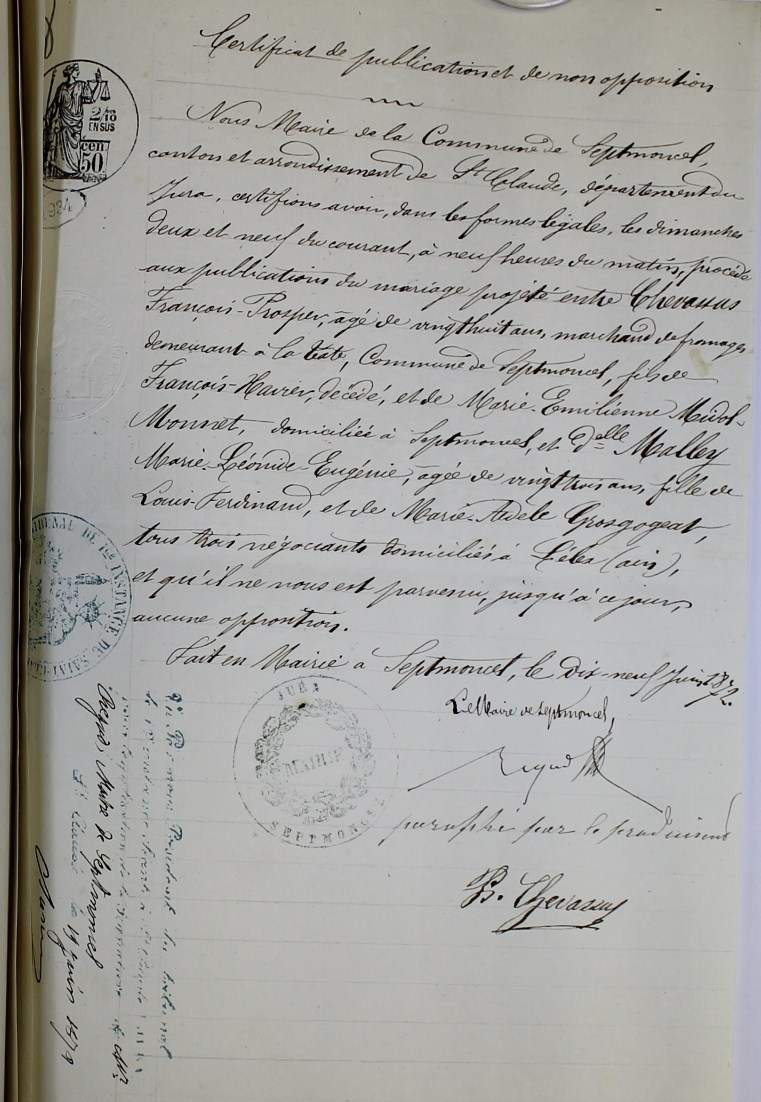 Certificat de publication et de non opposition
2/10
EN SUS
50
cen
Nous Maire de la Commune de Septmoncel,
canton et arrondissement de St Claude, département du
Jura, certifions avoir, dans les formes légales, les dimanches
deux et neuf du courant, à neuf heures du matin, procédé
aux publications du mariage projeté entre Chevassus
François-Prosper, âgé de vingt huit ans, marchand de fromages
demeurant à la Commune de Septmoncel, fils de
François-Xavier, décédé, et de Marie-Emilienne Midol-
Monnet, domiciliée à Septmoncel, et Delle Malley
Marie-Léonide-Eugénie, agée de vingt trois ans, fille de
Louis-Ferdinand, et de Marie-Adèle Grosgogeat,
tous trois négociants domiciliés à (ain),
et qu'il ne nous est parvenu, jusqu'à ce jour,
aucune opposition.
Fait en Mairie à Septmoncel, le Dix-neuf Juin
Le Maire de Septmoncel,
paraphé par le produisant
P. Chevassus
JURA
MAIRIE
SEPTMONCEL
TRIBUNAL DE 1re INSTANCE DE SAINT
Président du tribunal
de
Maire de Septmoncel
St Claude le 19 juin 1879